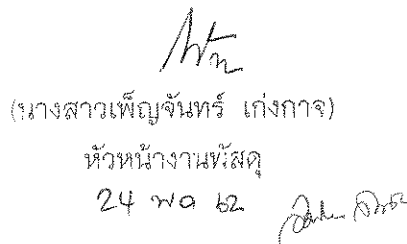 (นางสาวเพ็ญจันทร์ เก่งกาจ)
หัวหน้างานพัสดุ
24 พค 62